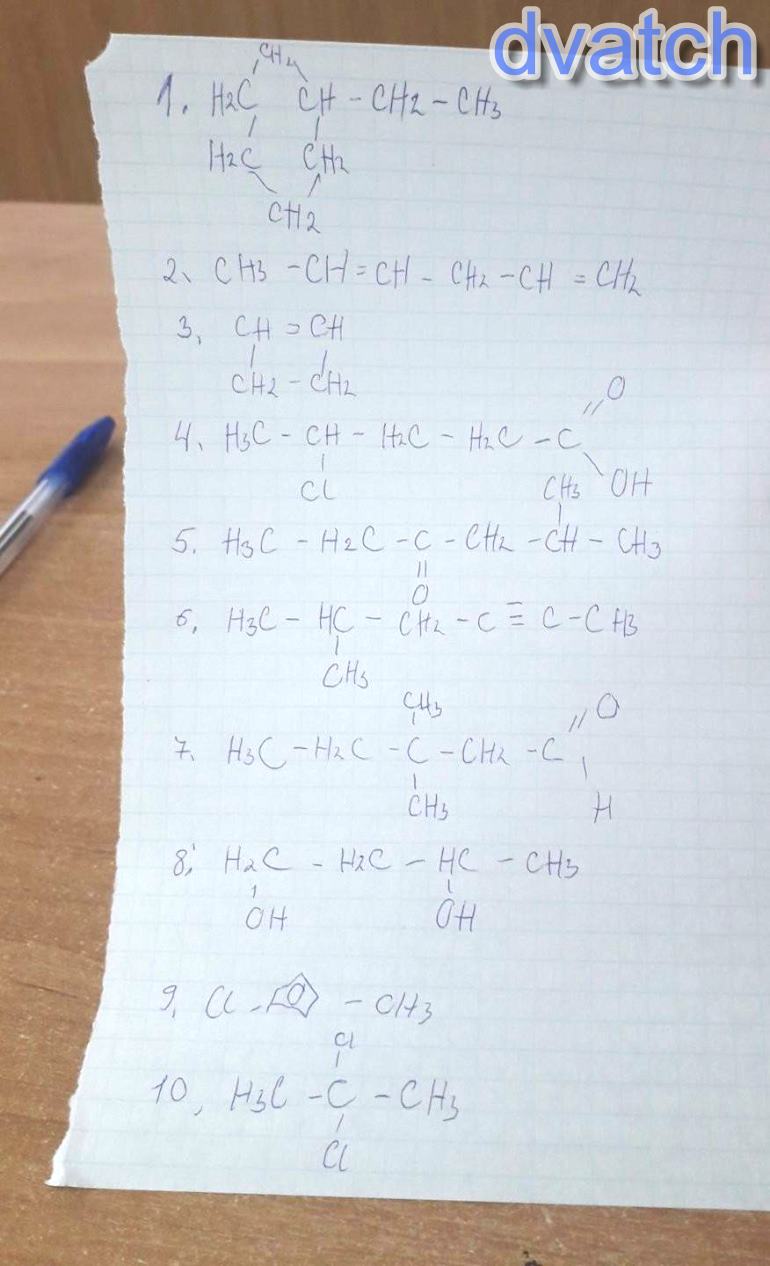 dvatch
CH2
1. H2C CH - CH2 - CH3
H2C CH2
CH2
2. CH3 - CH = CH - CH2 - CH = CH2
3. CH = CH
CH2 - CH2
O
4. H3C - CH - H2C - H2C - C
Cl CH3 OH
5. H3C - H2C - C - CH2 - CH - CH3
O
6. H3C - HC - CH2 - C ≡ C - CH3
CH3
CH3 O
7. H3C - H2C - C - CH2 - C
CH3 H
8. H2C - H2C - HC - CH3
OH OH
9. Cl - - CH3
Cl
10. H3C - C - CH3
Cl